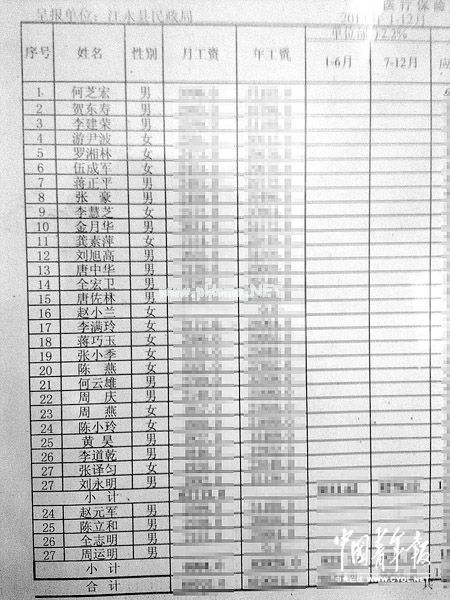 呈报单位：江永县民政局 医疗保险
年1-12月
序号 姓名 性别 月工资 年工资 2.2%
1-6月 7-12月
1 何芝宏 男
2 贺东寿 男
3 李建荣 男
4 游尹波 女
5 罗湘林 女
6 伍成军 女
7 蒋正平 男
8 张豪 男
9 李慧芝 女
10 金月华 男
11 龚素萍 女
12 刘旭高 男
13 唐中华 男
14 全宏卫 男
15 唐佐林 男
16 赵小兰 女
17 李满玲 女
18 蒋巧玉 女
19 张小季 女
20 陈燕 女
21 何云雄 男
22 周庆 男
23 周燕 女
24 陈小玲 女
25 黄昊 男
26 李道乾 男
27 张译匀 女
27 刘永明 男
小计
24 赵元军 男
25 陈立和 男
26 全志明 男
27 周运明 男
小计
合计
中国青年报
WWW.CYOL.NET